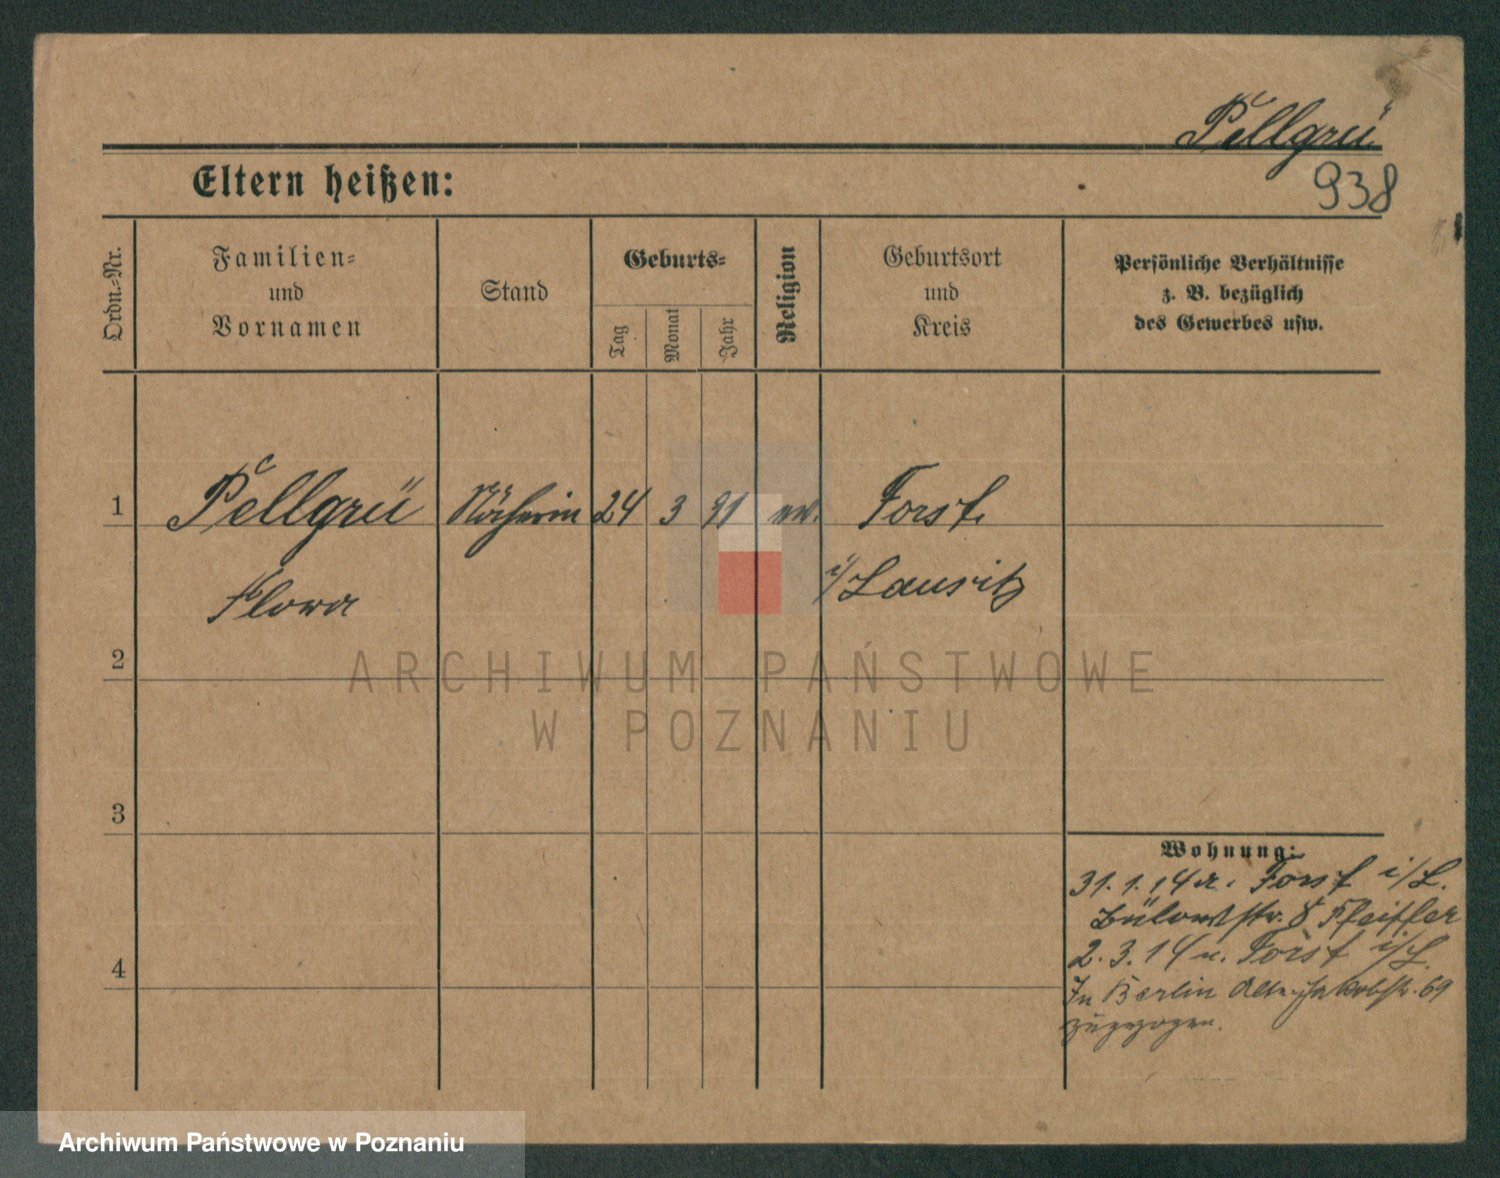 Pellgrü
Eltern heißen:
938
Ordn.-Nr.
Familien-
und
Vornamen
Stand
Geburts-
Tag
Monat
Jahr
Religion
Geburtsort
und
Kreis
Persönliche Verhältnisse
z. B. bezüglich
des Gewerbes usw.
1
Pellgrü Näherin 24 3 91 ev. Forst
Flora
i/Lausitz
2
ARCHIWUM PAŃSTWOWE
W POZNANIU
3
Wohnung:
31. 1. 14 Forst i/L.
Bülowstr. 8 Pfeiffer
2. 3. 14 n. Forst i/L.
In Berlin Alte Jakobstr. 69
zugezogen.
4
Archiwum Państwowe w Poznaniu